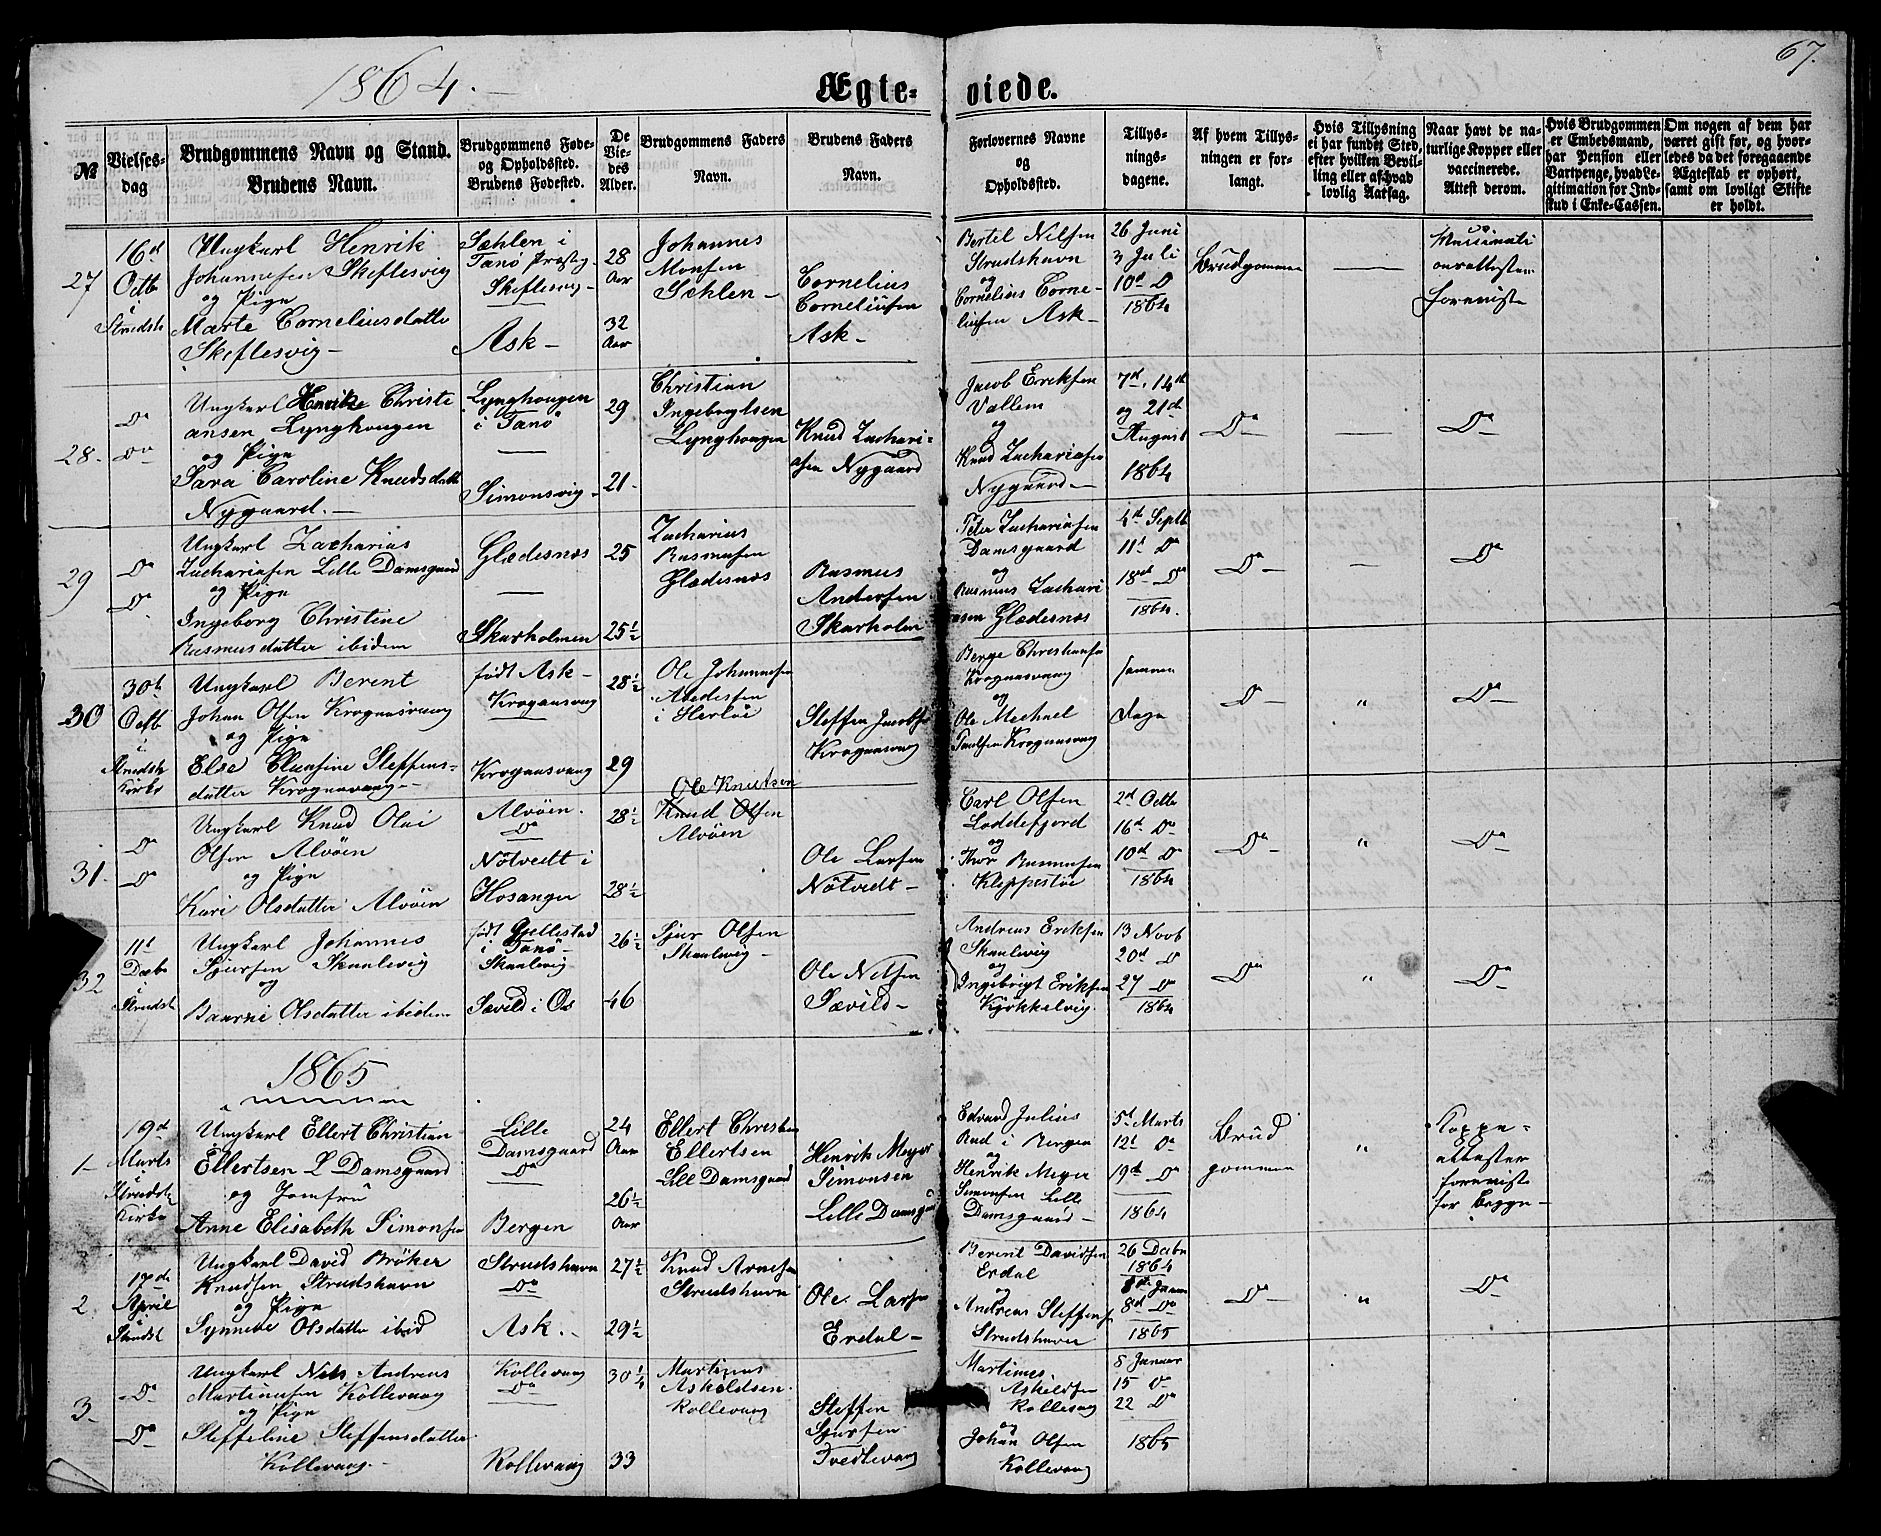 1864.
67.
Ægte-
viede.
№
Vielses-
dag
Brudgommens Navn og Stand.
Brudens Navn.
Brudgommens Føde-
og Opholdssted.
Brudens Fødested.
De
Vie-
des
Alder.
Brudgommens Faders
Navn.
Brudens Faders
Navn.
Forlovernes Navne
og
Opholdssted.
Tillys-
nings-
dagene.
Af hvem Tillys-
ningen er for-
langt.
Hvis Tillysning
ei har fundet Sted,
efter hvilken Bevil-
ling eller af hvad
lovlig Aarsag.
Naar havt de na-
turlige Kopper eller
vaccinerede.
Attest derom.
Hvis Brudgommen
er Embedsmand,
har Pension eller
Vartpenge, hvad Le-
gitimation for Ind-
skud i Enke-Cassen.
Om nogen af dem har
været gift før, og hvor-
ledes da det foregaaende
Ægteskab er ophørt,
samt om lovligt Skifte
er holdt.
27
16d
Octb
Strudsh
Ungkarl Henrik
Johannesen Skeflesvig
og Pige
Marte Corneliusdatter
Skeflesvig
Sæhlen i
Fanø Præstg.
Skeflesvig
Ask
28
Aar
32
Aar
Johannes
Monsen
Sehlen
Cornelius
Corneliusen
Ask
Bertel Nilsen
Strudshavn
og
Cornelius Corne-
liusen Ask
26 Juni
3 Juli
10d D
1864
Brudgommen
Vaccinati
onsattester
foreviste
28.
Do
Do
Ungkarl Henrik Christi
ansen Lynghougen
og Pige
Sara Caroline Knudsdatter
Nygaard.
Lynghougen
i Fanø
Simonsvig
29
21
Christian
Ingebrigtsen
Lynghougen
Knud Zachari-
asen Nygaard
Jacob Eriksen
Vallem
og
Knud Zachariasen
Nygaard
7d, 14d
og 21d
August
1864
Do
Do
29
Do
Do
Ungkarl Zacharias
Zachariasen Lille Damsgaard
og Pige
Ingeborg Christine
Rasmusdatter ibidem
Glædesnæs
Skarholmen
25
25½
Zacharius
Rasmusen
Glædesnæs
Rasmus
Andersen
Skarholm
Peter Zachariasen
Damsgaard
og
Rasmus Zachari
asen Glædesnæs
4d Septb
11d Do
18d Do
1864.
Do
Do
30
30t
Octb
i
Strudsh
Kirke
Ungkarl Berent
Johan Olsen Krognæsvaag
og Pige
Else Steffens-
datter Krognæsvaag
født Ask
Krognæsvaag
Krognæsvaag
28½
29
Ole Johannesen
i Herløe
Steffen Jacobsen
Krognæsvaag
Berge Christiansen
Krognæsvaag
og
Ole Mechael
Paulsen Krognæsvaag
samme
Dage
Do
"
Do
31.
Do
Do
Ungkarl Knud Olai
Olsen Alvøen
og Pige
Kari Olsdatter Alvøen
Alvøen.
Do
Nötvedt i
Hosanger
28½
28½
Ole Knutsen
Knud Olsen
Alvöen
Ole Larsen
Nötvedt
Carl Olsen
Loddefjord
og
Thor Rasmusen
Kleppestøe
2d Octb
16d Do
10d D
1864
Do
"
Do
32
11d
Decbr
i
Strudsh
Ungkarl Johannes
Sjursen Skaalevig
og
Olsdatter ibidem
født Gjellestad
i Fanø
Skaalevig
Sævild i Os
26½
46
Sjur Olsen
Skaalevig
Ole Nilsen
Sævild
Andreas Eriksen
Skaalevig
og
Ingebrigt Eriksen
Kjøkkelvig
13 Novb
20d D
27 D
1864
Do
"
Do
1865
1
19d
Marts
Strudsh
Kirke
Ungkarl Ellert Christian
Ellertsen L Damsgaard
og Jomfru
Anne Elisabeth Simonsen
Lille
Damsgaard
Do
Bergen
24
Aar
26½
Aar
Ellert Christian
Ellertsen
Lill Damsgaard
Henrik Meyer
Simonsen
Lille Damsgd
Edvard Julius
Rud i Bergen
og
Henrik Meyer
Simonsen Lille
Damsgaard
5d Marts
12d Do
19d D
1864
Brud
gommen
"
Koppe-
attester
foreviste
for begge
2.
17de
April
Strudsh
Ungkarl David Bröker
Knudsen Strudshavn
og Pige
Synneve Olsdatter ibid
Strudshavn
Do
Ask.
27½
29½
Knud Arnesen
Strudshavn
Ole Larsen
Erdal
Berent Davidsen
Erdal
og
Andreas Steffens
Strudshavn
26 Decbr
1864
8d Do
1865
Do
"
Do
3.
Do
Do
Ungkarl Nils Andreas
Martinusen Kollevaag
og Pige
Steffeline Steffensdatter
Kollevaag
Kollevaag
Do
Kollevaag
30¼
33
Martinus
Askeldsen
Kollevaag
Steffen
Sjursen
Tvedtevaag
Martines
Askildsen
Kollevaag
og
Johan Olsen
Kollevaag
8 Januar
15 D
22 D
1865